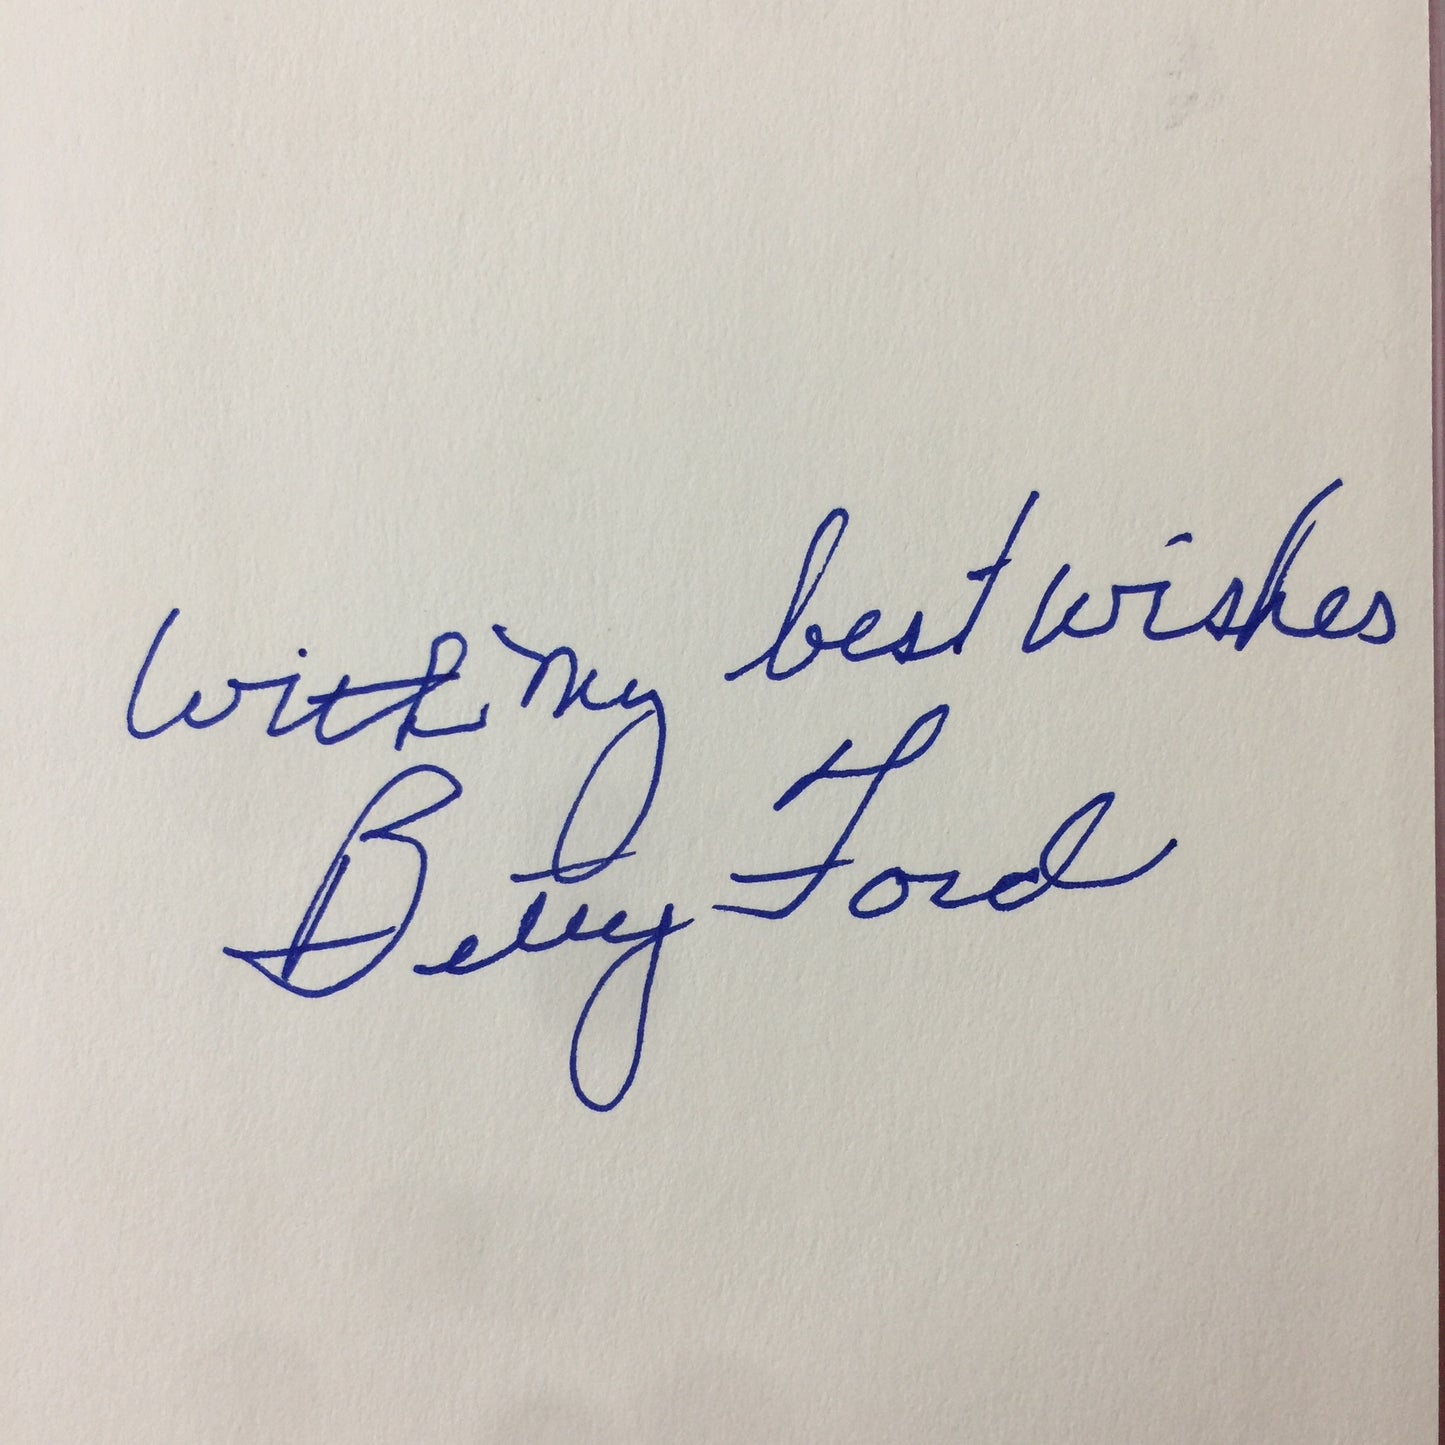 With my best wishes
Betty Ford